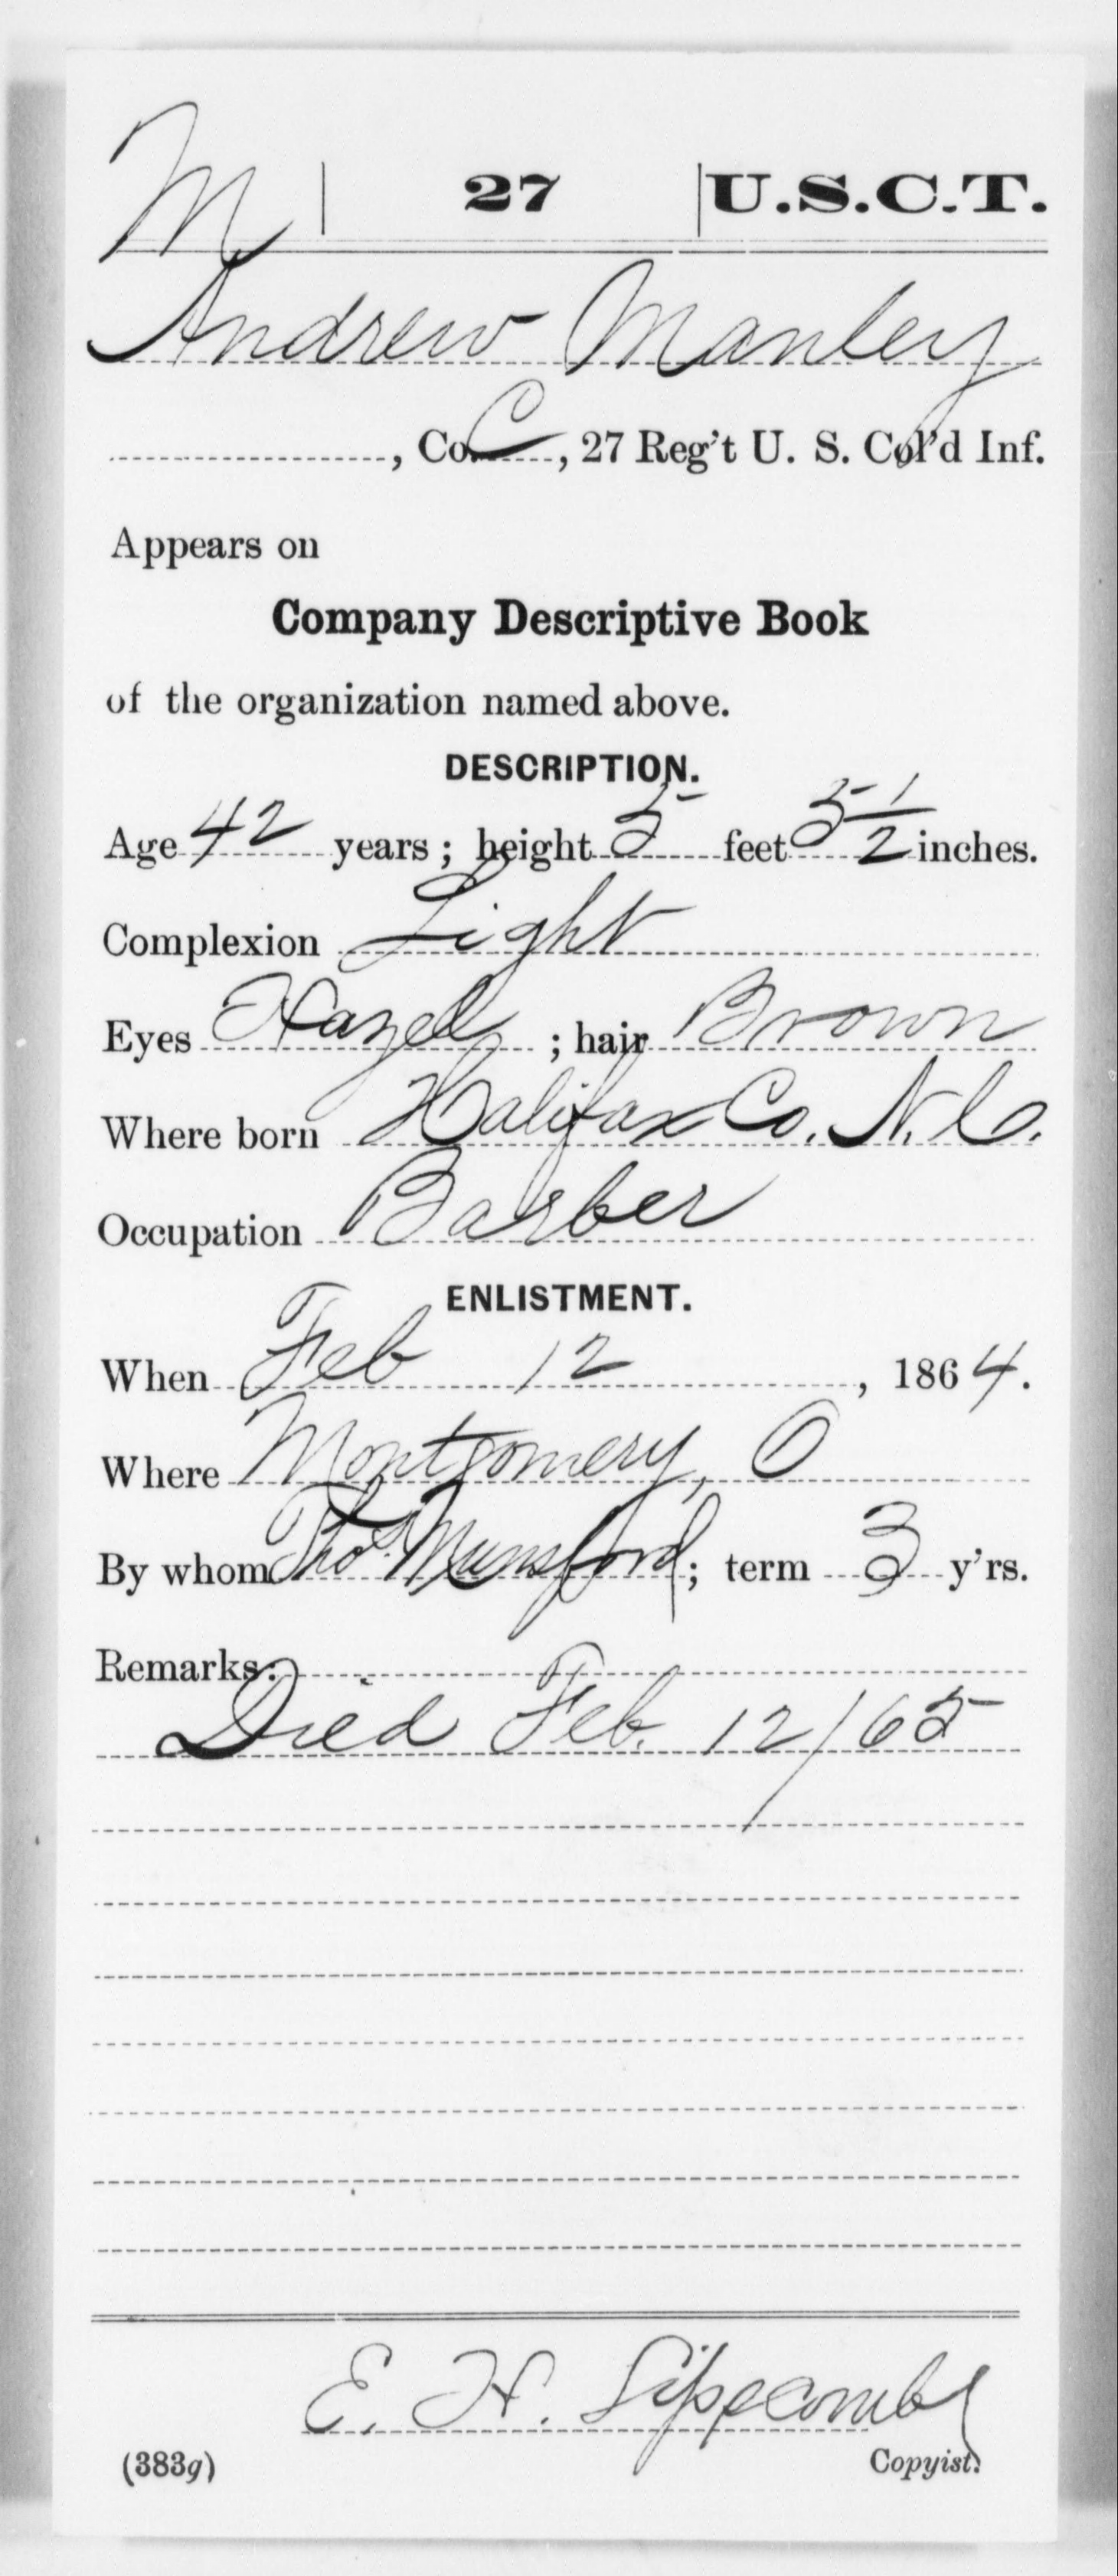 M | 27 | U.S.C.T.
Andrew Manley
, Co. C, 27 Reg't U. S. Col'd Inf.
Appears on
Company Descriptive Book
of the organization named above.
DESCRIPTION.
Age 42 years; height 5 feet 5 1/2 inches.
Complexion Light
Eyes Hazel; hair Brown
Where born Halifax Co. N. C.
Occupation Barber
ENLISTMENT.
When Feb 12, 1864.
Where Montgomery, O
By whom Thos. Munsford; term 3 y'rs.
Remarks:
Died Feb. 12/65
E. H. Lipscomb
(383g) Copyist.